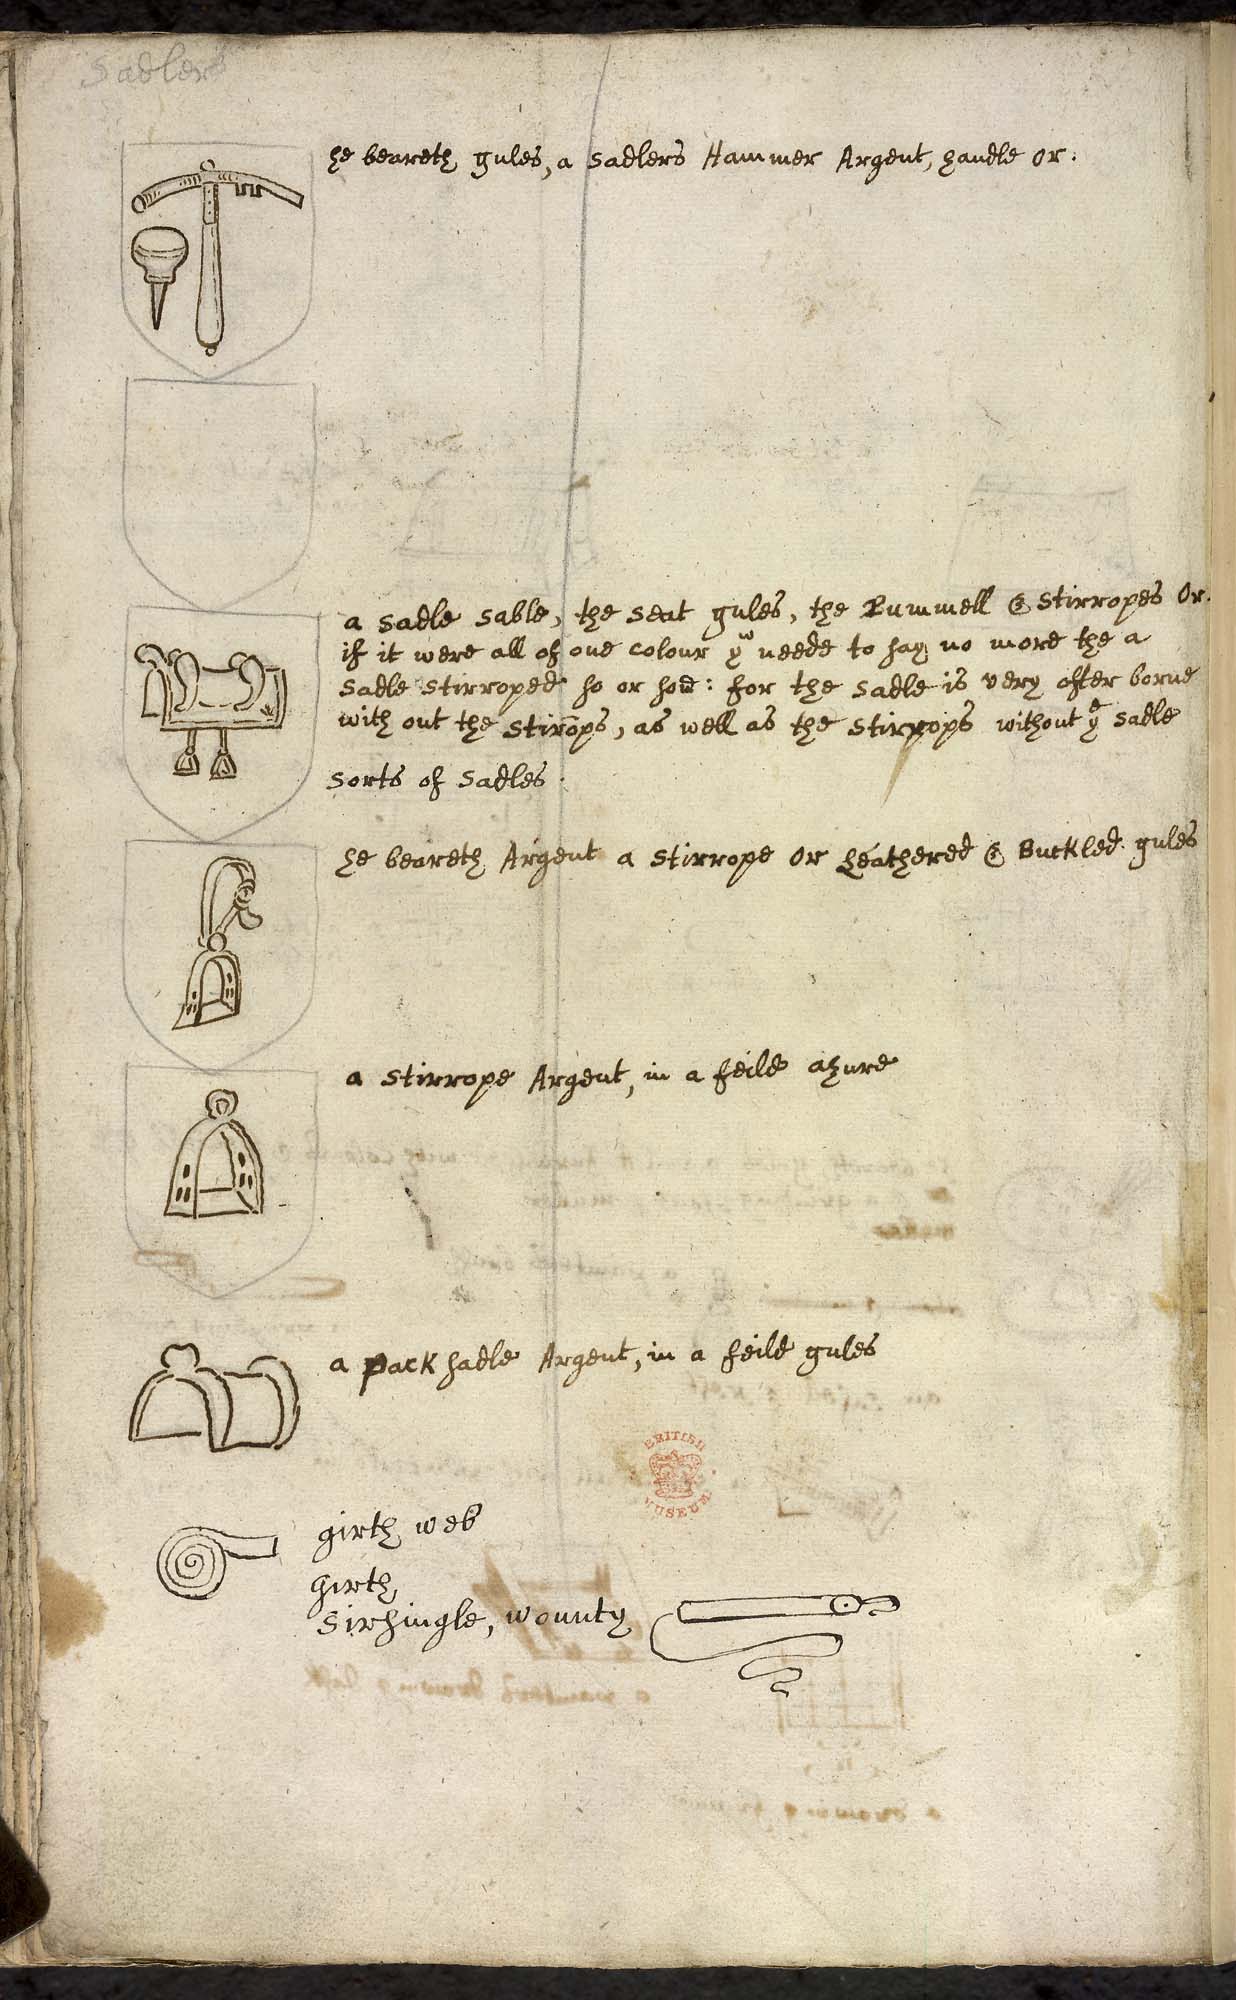 Sadlers
he beareth gules, a sadlers Hammer Argent, handle or:
a sadle sable, the seat gules, the Bummell & stirropes Or.
if it were all of one colour yᵘ neede to say no more the a
sadle stirroped so or so: for the sadle is very often borne
with out the stirops, as well as the stirrops without yᵉ sadle
sorts of sadles.
he beareth Argent a stirrope Or Leathered & Buckled gules
a stirrope Argent, in a feild azure
a pack sadle Argent, in a feild gules
BRITISH MUSEUM
girth web
girth
sirsingle, wounty